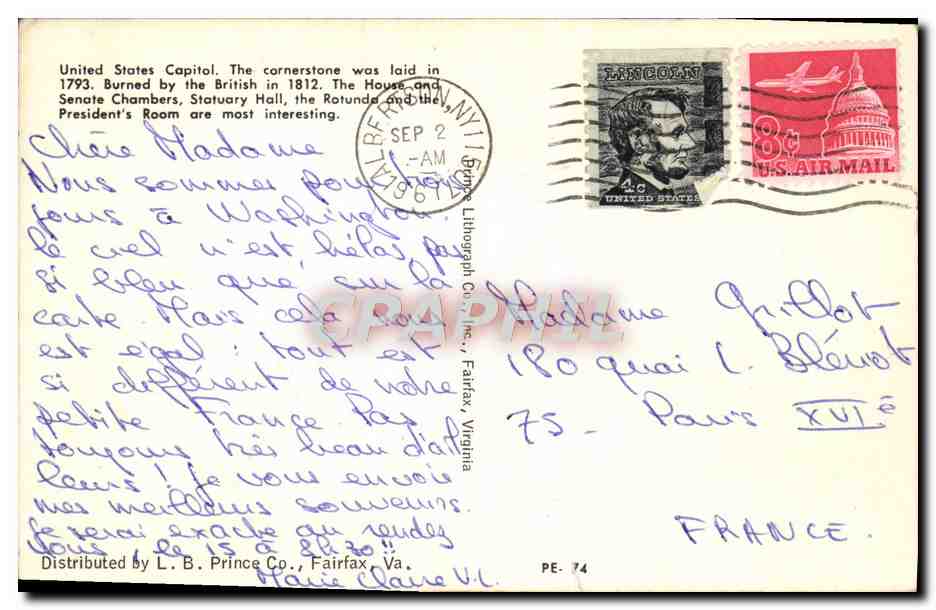 United States Capitol. The cornerstone was laid in
1793. Burned by the British in 1812. The House and
Senate Chambers, Statuary Hall, the Rotunda and the
President's Room are most interesting.
Chère Madame
Nous sommes pour trois
jours à Washington.
le ciel n'est, hélas, pas
si bleu que sur la
carte. Mais cela nous
est égal : tout est
si différent de notre
petite France. Pas
toujours très beau d'ail
leurs ! Je vous envoie
mes meilleurs souvenirs.
Je serai exacte au rendez
vous, le 15 à 8h30 !!
Marie Claire V.L.
Distributed by L. B. Prince Co., Fairfax, Va.
PE- 74
Prince Lithograph Co., Inc., Fairfax, Virginia
ALBERTSON, NY 115
SEP 2
-AM
LINCOLN
4c
UNITED STATES
8c
U.S. AIR MAIL
CPAPHIL
Madame Grillot
180 quai L. Blériot
75 - Paris XVIè
FRANCE.